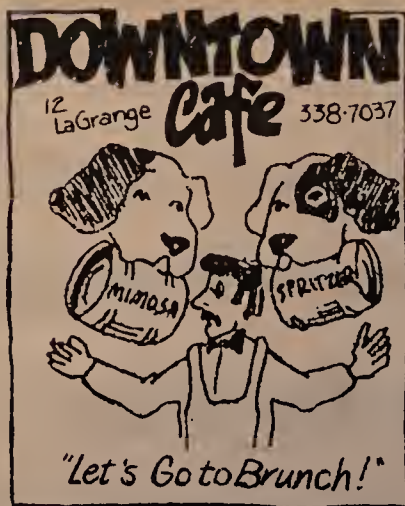 DOWNTOWN
Cafe
12
LaGrange
338-7037
MIMOSA
SPRITZER
"Let's Go to Brunch!"